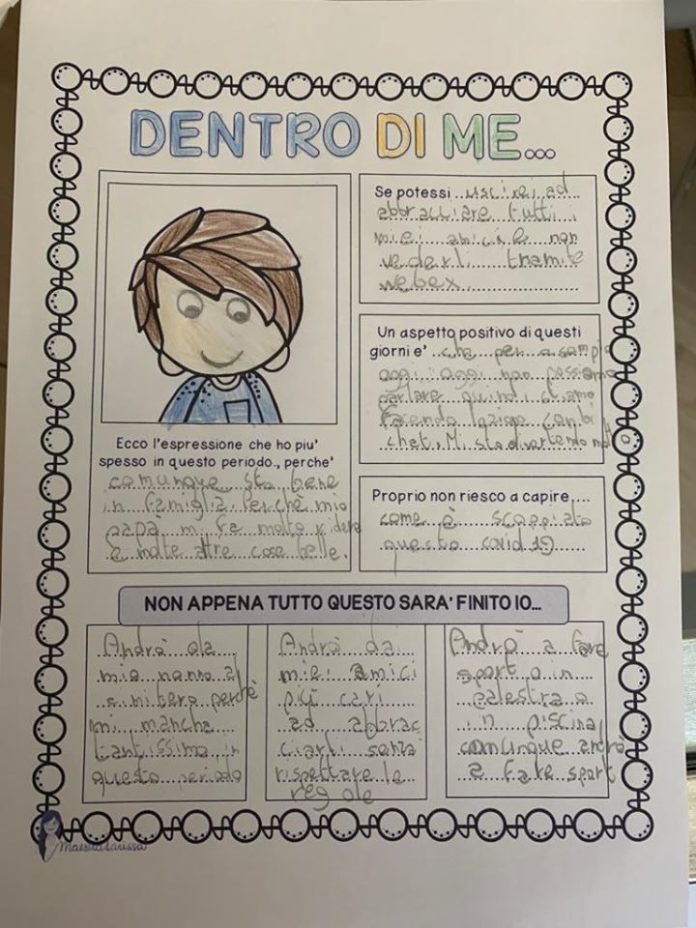 DENTRO DI ME...
Se potessi uscirei ad
abbracciare tutti i
miei amici e non
vederli tramite
webex
Un aspetto positivo di questi
giorni e' che per esempio
oggi non possiamo
parlare quindi stiamo
facendo
chat. Mi sto divertendo molto
Ecco l'espressione che ho piu'
spesso in questo periodo., perche'
comunque sto bene
in famiglia. Perchè mio
papà mi fa molto ridere
e molte altre cose belle.
Proprio non riesco a capire,...
come è scoppiato
questo covid 19
NON APPENA TUTTO QUESTO SARA' FINITO IO...
Andrò da
mia nonna al
cimitero perchè
mi mancha
tantissimo in
questo periodo
Andrò dai
miei amici
più cari
ad abbrac
ciarli senza
rispettare le
regole
Andrò a fare
sport o in
palestra o
in piscina
comunque andrò
a fare sport
MaestraLarissa